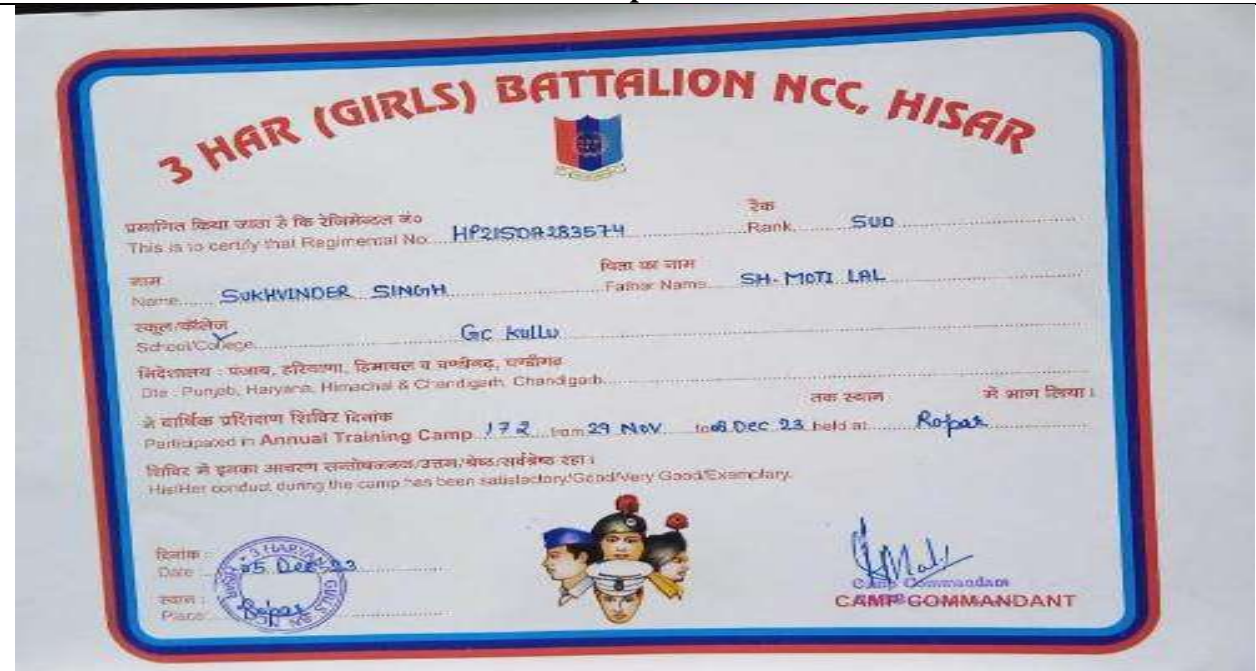 3 HAR (GIRLS) BATTALION NCC, HISAR
प्रमाणित किया जाता है कि रेजिमेन्टल नं०
रैंक
This is to certify that Regimental No. HP21SDA283574 Rank SUO
नाम
पिता का नाम
Name SUKHVINDER SINGH Father Name SH. MOTI LAL
स्कूल/कॉलेज
School/College GC Kullu
निदेशालय : पंजाब, हरियाणा, हिमाचल व चण्डीगढ़, चण्डीगढ़
Dte : Punjab, Haryana, Himachal & Chandigarh, Chandigarh
ने वार्षिक प्रशिक्षण शिविर दिनांक तक स्थान में भाग लिया।
Participated in Annual Training Camp 172 from 29 NOV to 08 Dec 23 held at Ropar
शिविर में इनका आचरण सन्तोषजनक/उत्तम/श्रेष्ठ/सर्वश्रेष्ठ रहा।
His/Her conduct during the camp has been satisfactory/Good/Very Good/Exemplary.
दिनांक :
Date 05 Dec 23
स्थान :
Place Ropar
Camp Commandant
CAMP COMMANDANT